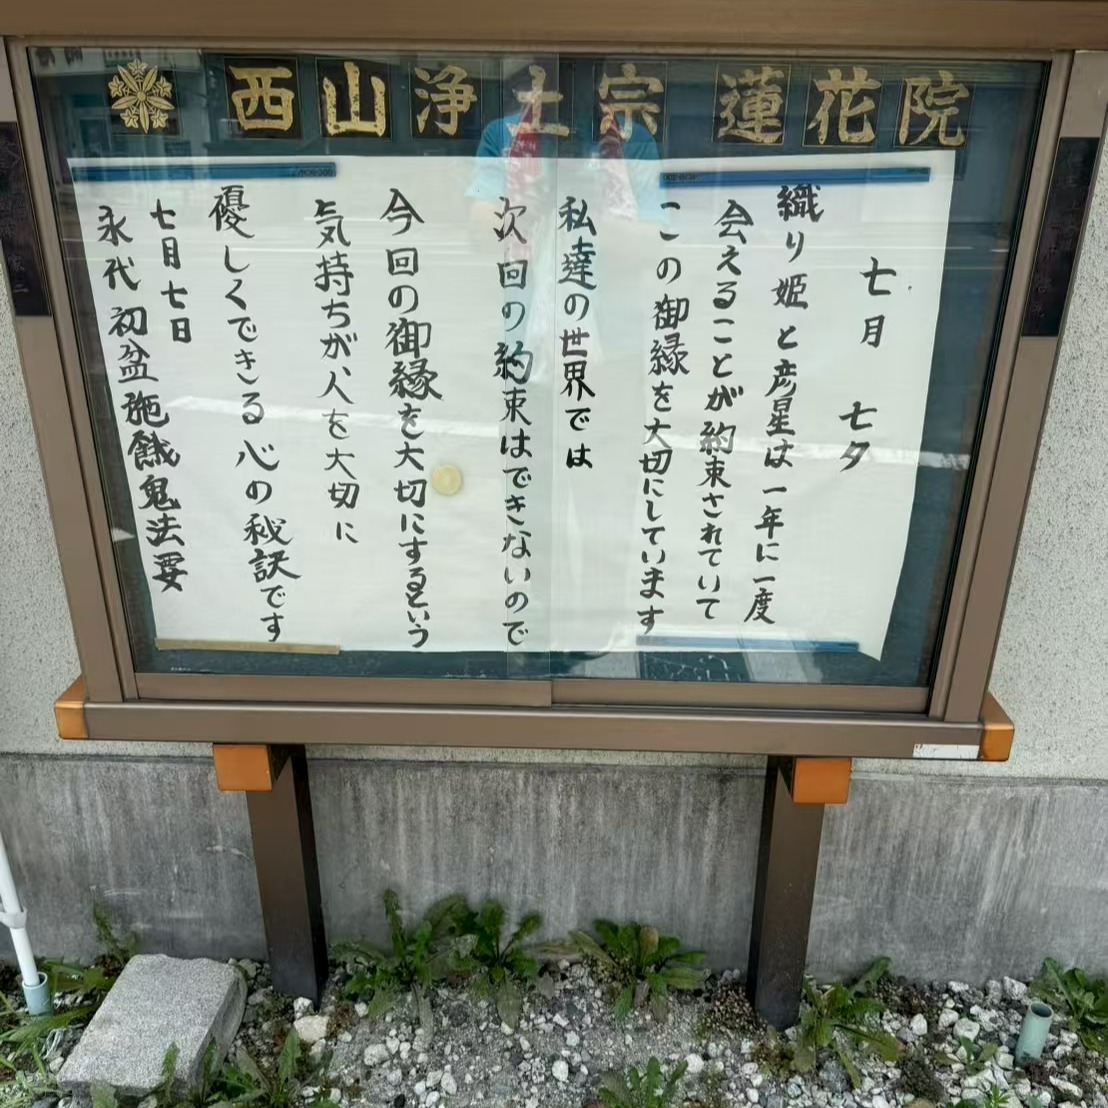 西山浄土宗 蓮花院
七月 七夕
織り姫と彦星は一年に一度
会えることが約束されていて
この御縁を大切にしています
私達の世界では
次回の約束はできないので
今回の御縁を大切にするという
気持ちが人を大切に
優しくできる心の秘訣です
七月七日
永代初盆施餓鬼法要